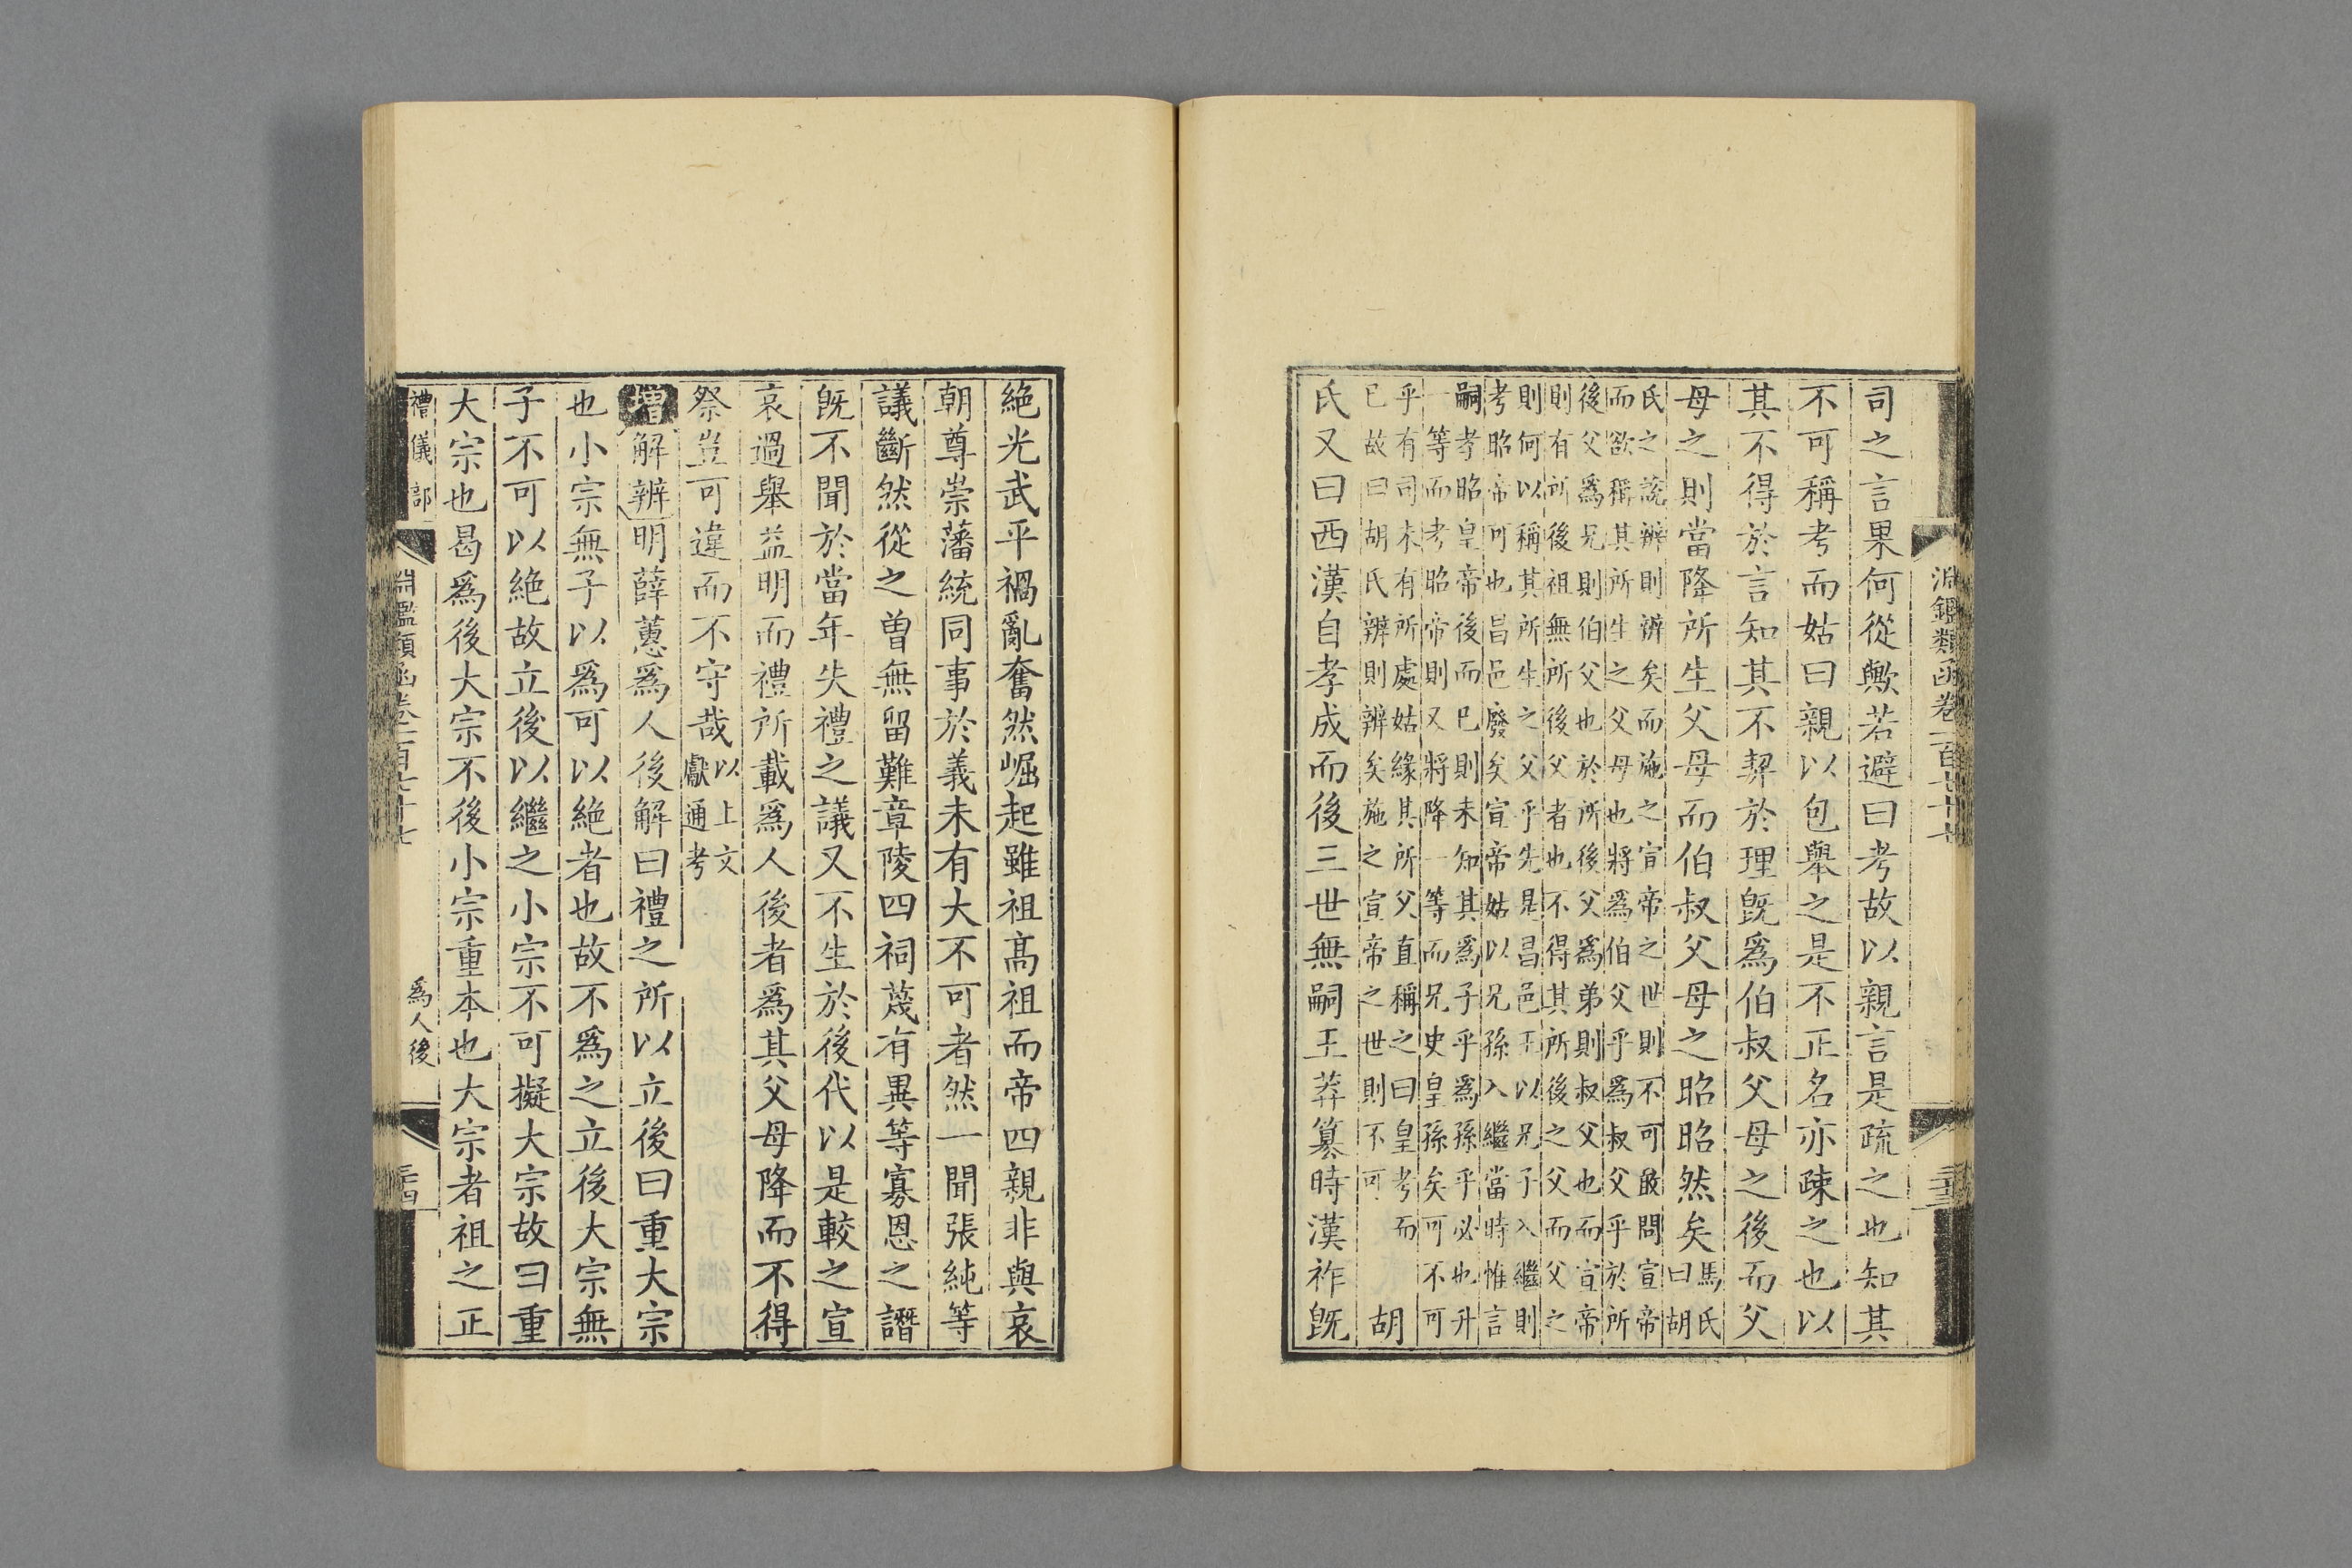 淵鑑類函卷一百七十七 三十三
司之言果何從歟若避曰考故以親言是疏之也知其
不可稱考而姑曰親以包舉之是不正名亦疎之也以
其不得於言知其不契於理既爲伯叔父母之後而父
母之則當降所生父母而伯叔父母之昭昭然矣馬氏
曰胡
氏之說辨則辨矣而施之宣帝之世則不可敢問宣帝
而欲稱其所生之父母也將爲伯父乎爲叔父乎於所
後父爲兄則伯父也於所後父爲弟則叔父也而宣帝
則有所後祖無所後父者也不得其所後之父而父之
則何以稱其所生之父乎先是昌邑王以兄子入繼則
考昭帝可也昌邑廢矣宣帝姑以兄孫入繼當時惟言
嗣孝昭皇帝後而已則未知其爲子乎爲孫乎必也升
一等而考昭帝則又將降一等而兄史皇孫矣可不可
乎有司未有所處姑緣其所父直稱之曰皇考而
已故曰胡氏辨則辨矣施之宣帝之世則不可
胡
氏又曰西漢自孝成而後三世無嗣王莽篡時漢祚既
絶光武平禍亂奮然崛起雖祖高祖而帝四親非與哀
朝尊崇藩統同事於義未有大不可者然一聞張純等
議斷然從之曾無留難章陵四祠蔑有異等寡恩之譖
既不聞於當年失禮之議又不生於後代以是較之宣
哀過舉益明而禮所載爲人後者爲其父母降而不得
祭豈可違而不守哉以上文
獻通考
增解辨明薛蕙爲人後解曰禮之所以立後曰重大宗
也小宗無子以爲可以絶者也故不爲之立後大宗無
子不可以絶故立後以繼之小宗不可擬大宗故曰重
大宗也曷爲後大宗不後小宗重本也大宗者祖之正
禮儀部 淵鑑類函卷一百七十七 爲人後 三十四